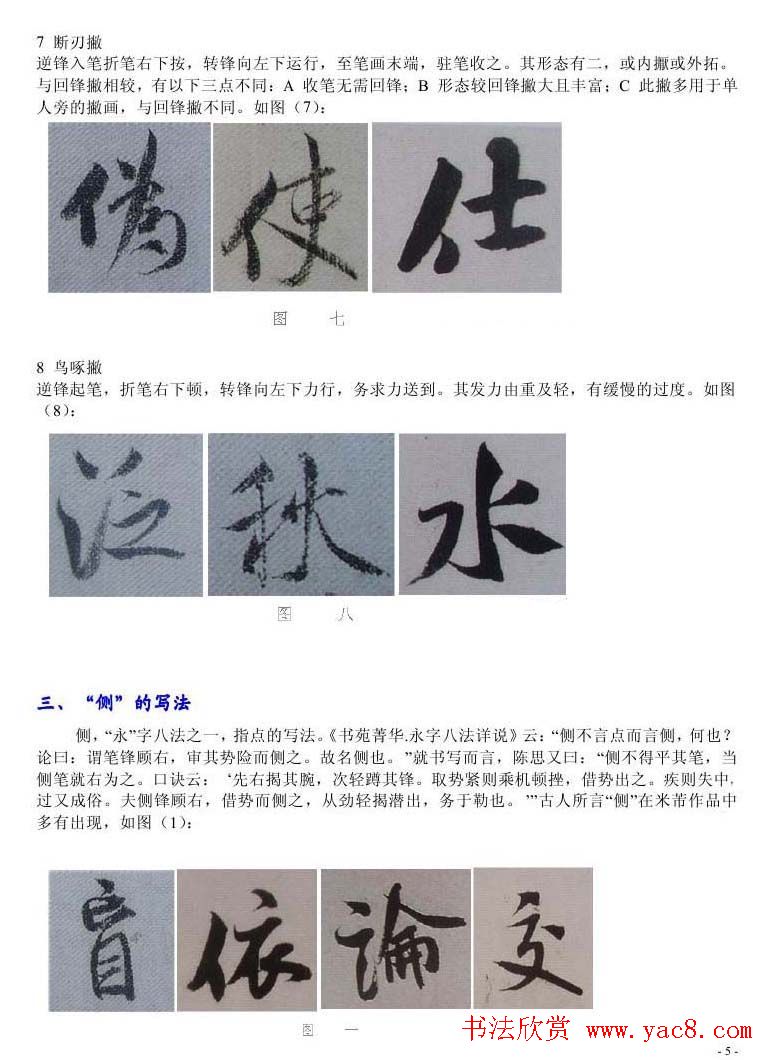 7 断刃撇
逆锋入笔折笔右下按，转锋向左下运行，至笔画末端，驻笔收之。其形态有二，或内擫或外拓。
与回锋撇相较，有以下三点不同：A 收笔无需回锋；B 形态较回锋撇大且丰富；C 此撇多用于单
人旁的撇画，与回锋撇不同。如图（7）：
偽 使 仕
图 七
8 鸟啄撇
逆锋起笔，折笔右下顿，转锋向左下力行，务求力送到。其发力由重及轻，有缓慢的过度。如图
（8）：
泛 秋 水
图 八
三、“侧”的写法
侧，“永”字八法之一，指点的写法。《书苑菁华.永字八法详说》云：“侧不言点而言侧，何也？
论曰：谓笔锋顾右，审其势险而侧之。故名侧也。”就书写而言，陈思又曰：“侧不得平其笔，当
侧笔就右为之。口诀云：‘先右揭其腕，次轻蹲其锋。取势紧则乘机顿挫，借势出之。疾则失中，
过又成俗。夫侧锋顾右，借势而侧之，从劲轻揭潜出，务于勒也。’”古人所言“侧”在米芾作品中
多有出现，如图（1）：
盲 依 論 交
图 一
书法欣赏 www.yac8.com
- 5 -